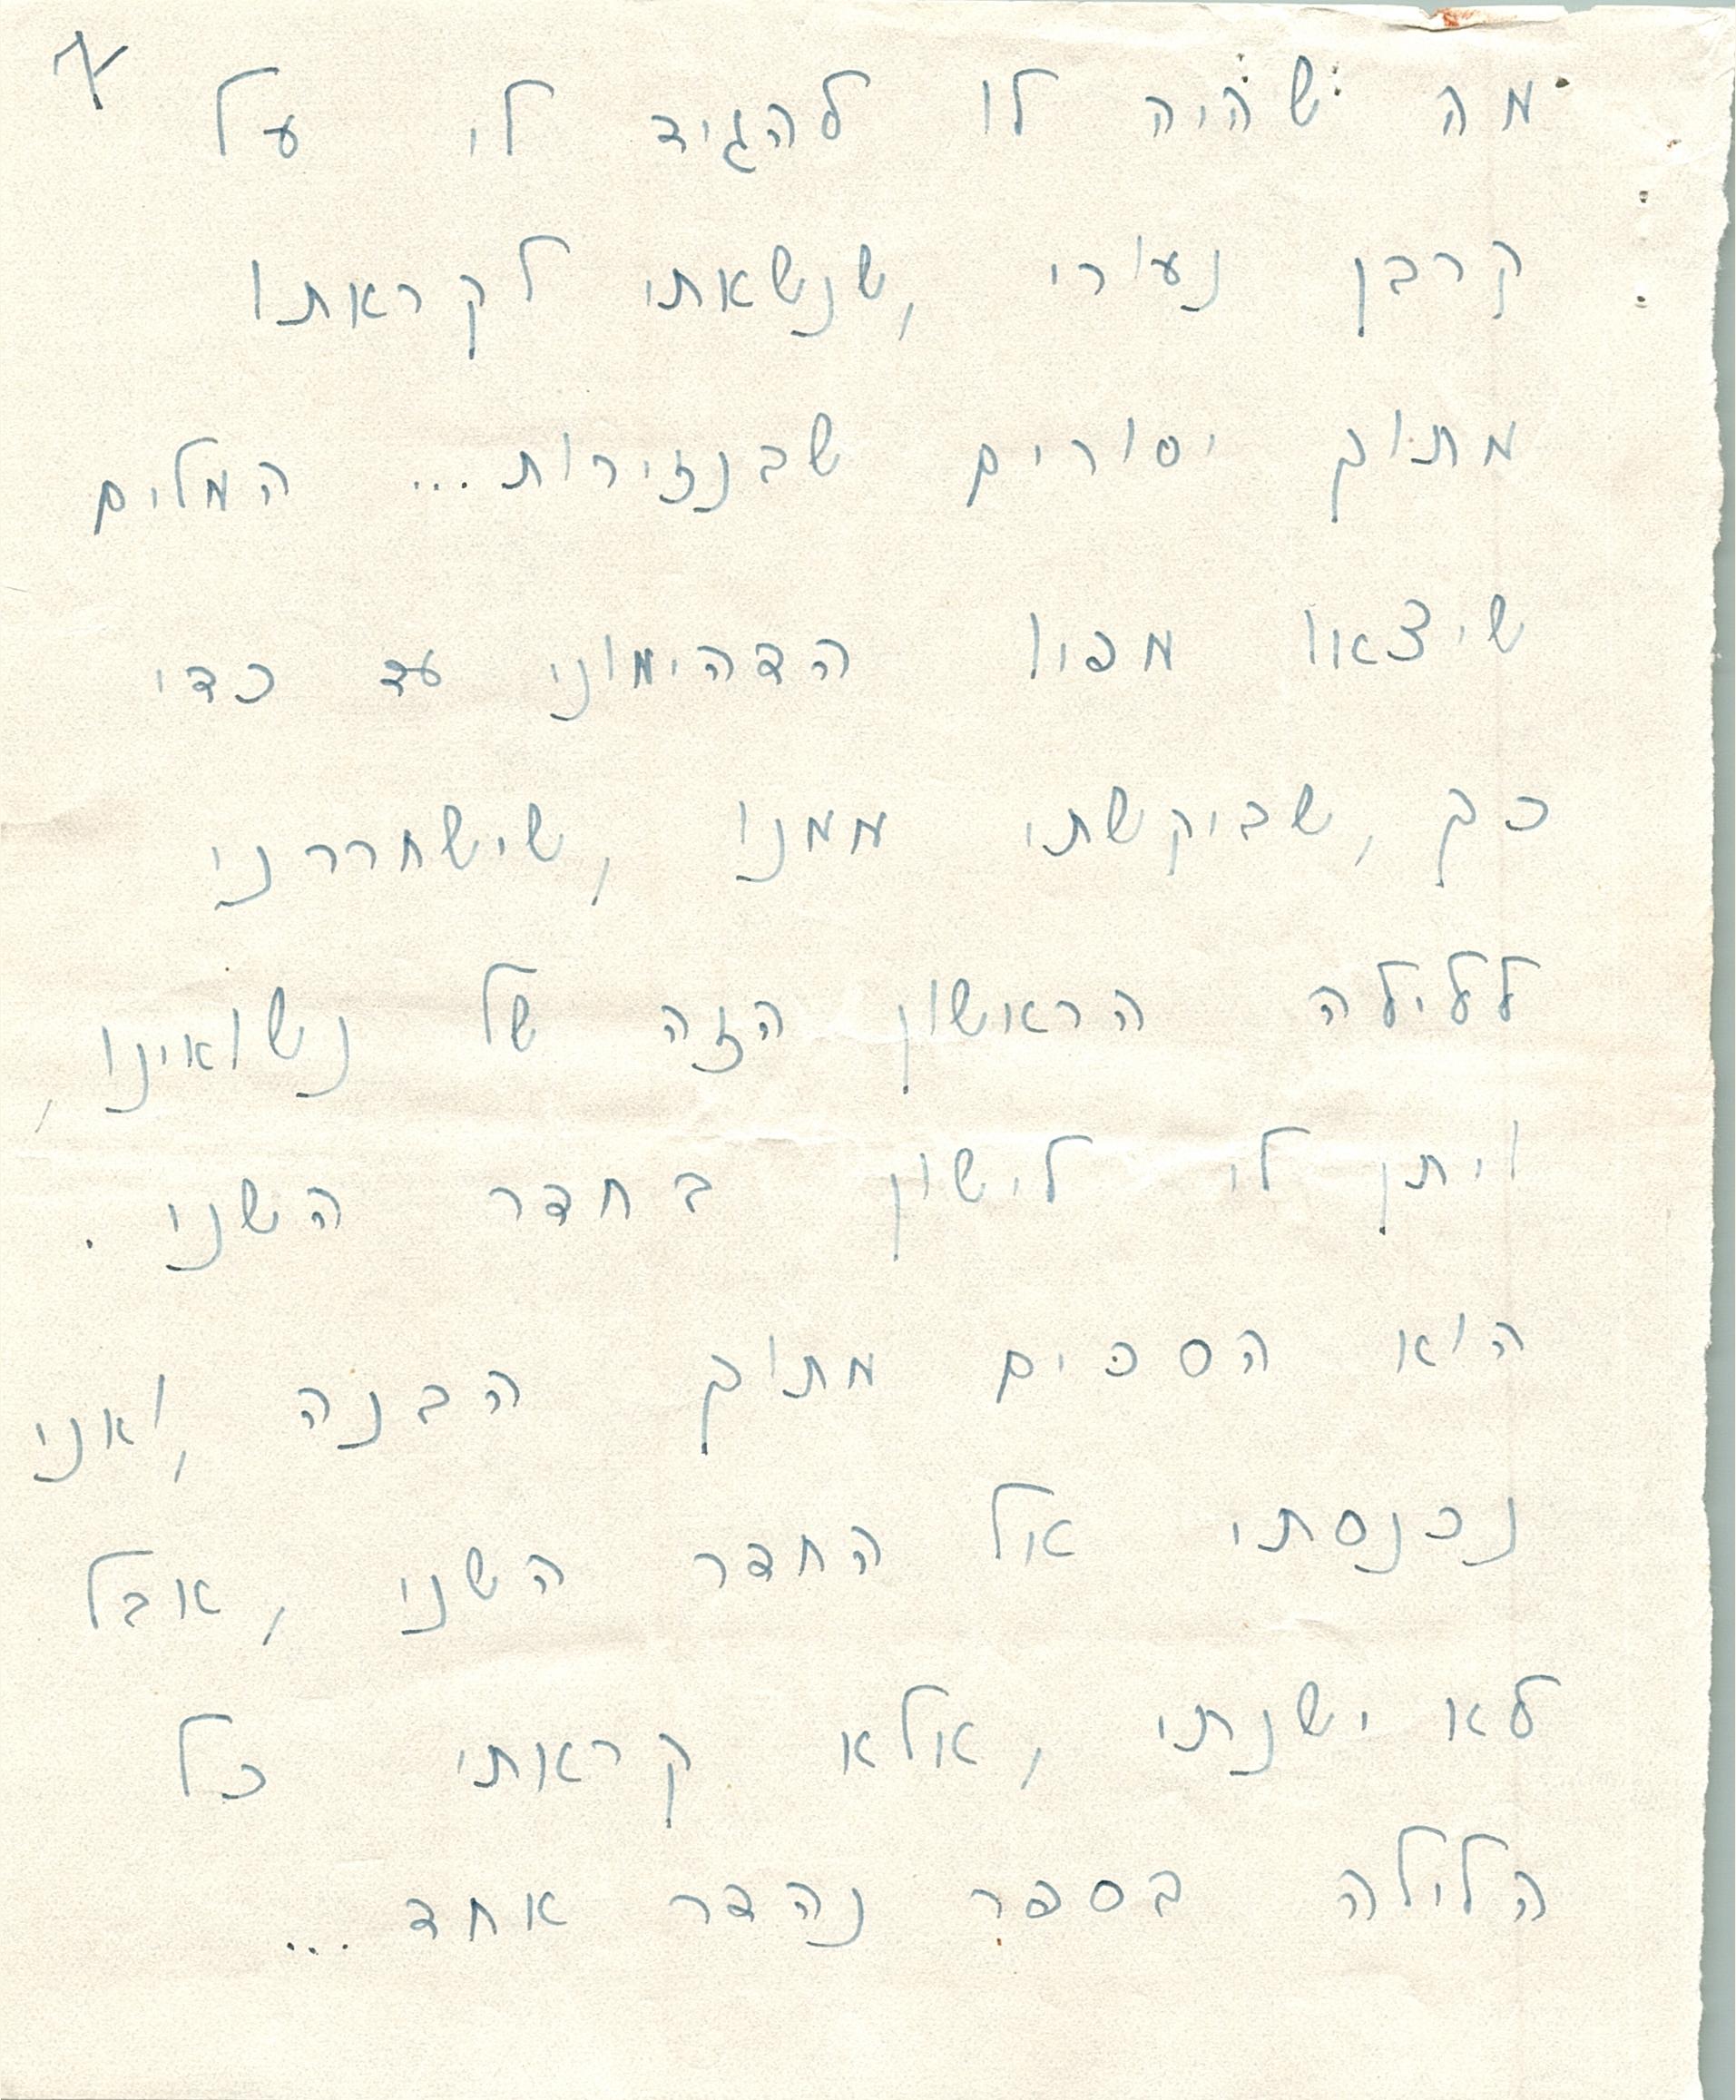 מה שהיה לו להגיד לי על
קרבן נעורי, שנשאתי לקראתו
מתוך יסורים שבנזירות... המלים
שיצאו מפיו הדהימוני עד כדי
כך, שביקשתי ממנו, שישחררני
ללילה הראשון הזה של נשואינו,
ויתן לי לישון בחדר השני.
הוא הסכים מתוך הבנה, ואני
נכנסתי אל החדר השני, אבל
לא ישנתי, אלא קראתי כל
הלילה בספר נהדר אחד...